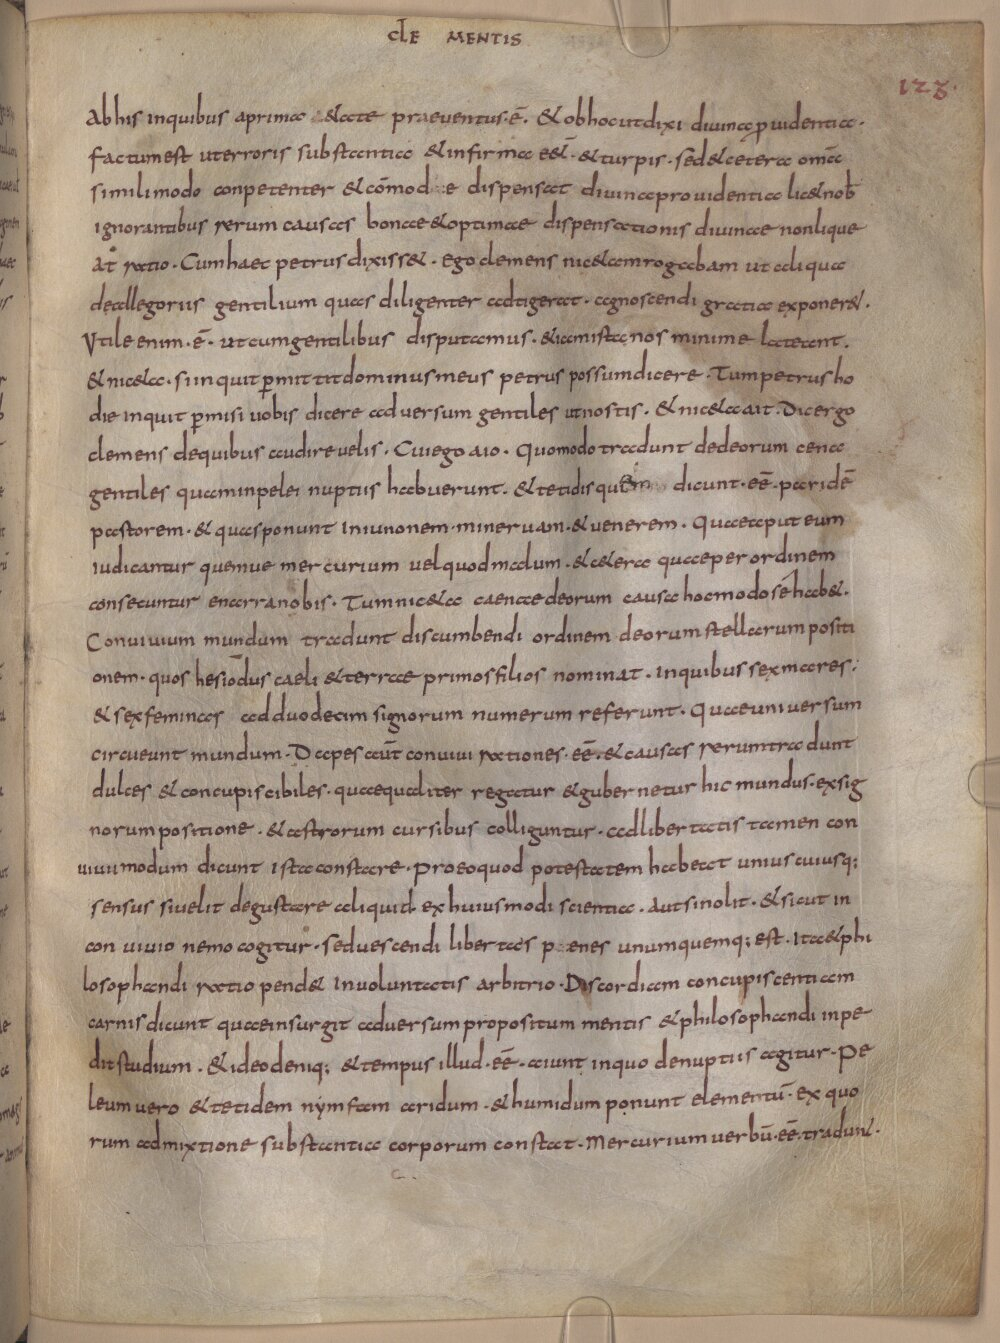 CLE MENTIS
128.
Ab his inquibus aprima &ate praeventus·ē· &obhocutdixi divina ꝓuidentia·
factumest uterroris substantia &infirma eē·&turpis·sed&cetera omīa
similimodo conpetenter &cōmode dispensat divinaprouidentia lic&nob̄
ignorantibus rerum causas bonae&optimae dispensationis divinae nonlique
at ratio·Cumhaec petrusdixiss&·ego clemens nic&amrogabam ut aliqua
deallegoriis gentilium quas diligenter adtigerat·agnoscendi gratia exponer&·
Vtile enim·ē·utcumgentilibus disputamus·&iamistac nos minime lateant·
&nic&a·si inquit ꝑmittitdominusmeus petrus possumdicere·Tumpetrusho
die inquit ꝑmisi uobis dicere adversum gentiles utnostis·&nic&aait·Dicergo
clemens dequibus audirevelis·Cuiego aio·Quomodotradunt dedeorum cena
gentiles quaminpelei nuptiis habuerunt·&tetidisquem dicunt·eē·paridē
pastorem·&quasponunt Iniunonem·minervam·&venerem·Quaecaputeum
iudicantur quemve mercurium velquodmalum·&c&era quaeperordinem
consecuntur enarranobis·Tumnic&a caenaedeorum causa hocmodosēhab&·
Convivium mundum tradunt discumbendi ordinem deorumstellarumpositi
onem·quos hesiōdus caeli &terrae primosfilios nominat·Inquibussexmares·
&sexfeminas adduodecim signorum numerum referunt·Quaeuniversum
circueunt mundum·Dapesaūt convivi rationes·eē·&causas rerumtradunt
dulces &concupiscibiles·quaequaliter regatur &gubernetur hic mundus·exsig
norumpositione·&astrorum cursibus colliguntur·adlibertatis tamen con
viviimodum dicunt Ista constare·proeoquod potestatem habeat uniuscuiusq;
sensus sivelit degustare aliquid exhuiusmodi scientia·Autsinolit·&sicut in
con vivio nemo cogitur·seduescendi libertas p enes unumquemq; est·Ita&phi
losophandi ratio pend& Involuntatis arbitrio·Discordiam concupiscentiam
carnisdicunt quaeinsurgit adversumpropositum mentis &philosophandi inpe
ditstudium·&ideodeniq; &tempus illud·eē·aiunt inquo denuptiis agitur·Pe
leumvero &tetidem nymfam aridum·&humidumponunt elementū·ex quo
rum admixtione substantia corporum constat·Mercuriumverbū·eē·tradunt·